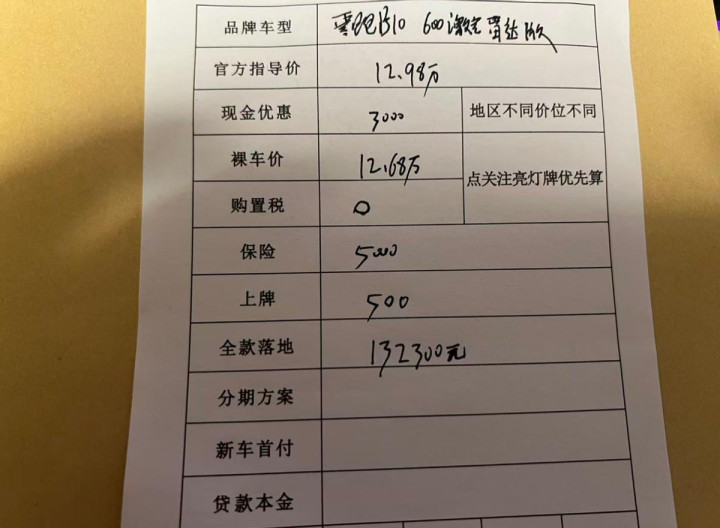 品牌车型 零跑B10 600激光雷达版
官方指导价 12.98万
现金优惠 3000 地区不同价位不同
裸车价 12.68万
点关注亮灯牌优先算
购置税 0
保险 5000
上牌 500
全款落地 132300元
分期方案
新车首付
贷款本金